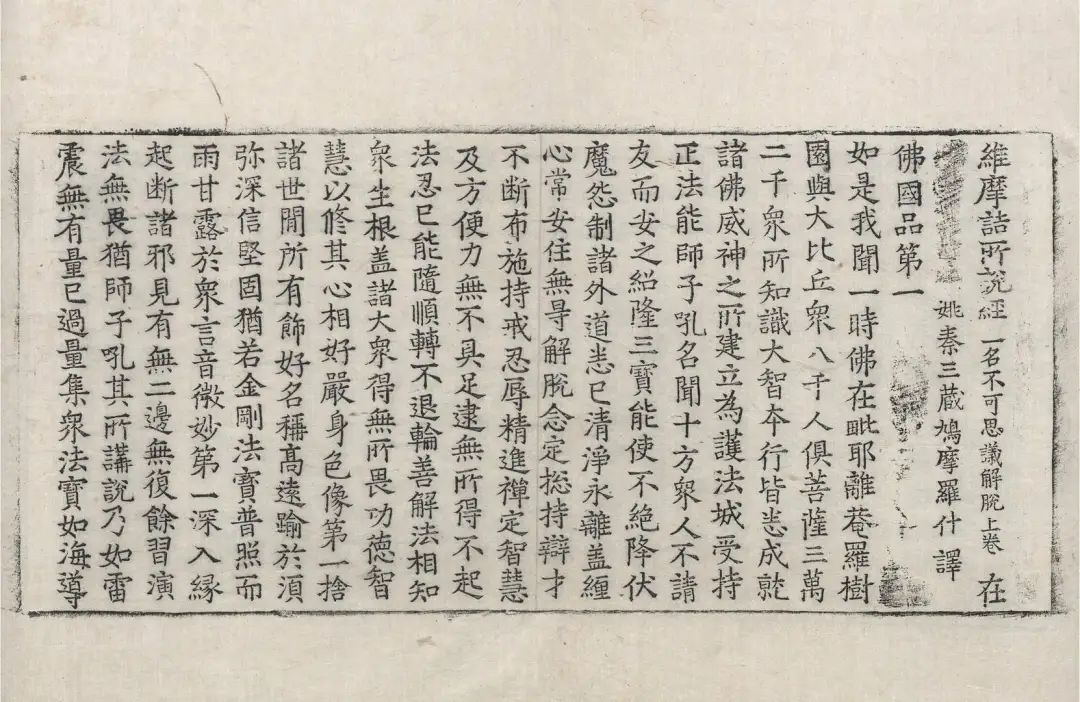 維摩詰所說經 一名不可思議解脫上卷 在
姚秦三蔵鳩摩羅什 譯
佛國品第一
如是我聞一時佛在毗耶離菴羅樹
園與大比丘眾八千人俱菩薩三萬
二千眾所知識大智夲行皆悉成就
諸佛威神之所建立為護法城受持
正法能師子吼名聞十方眾人不請
友而安之紹隆三寶能使不絕降伏
魔怨制諸外道悉已清淨永離盖纏
心常安住無㝵解脫念定捴持辯才
不断布施持戒忍辱精進禪定智慧
及方便力無不具足逮無所得不起
法忍已能隨順轉不退輪善解法相知
眾生根盖諸大眾得無所畏功德智
慧以修其心相好嚴身色像第一捨
諸世間所有飾好名稱髙遠踰於湏
弥深信堅固猶若金剛法寶普照而
雨甘露於眾言音微妙第一深入縁
起断諸邪見有無二邊無復餘習演
法無畏猶師子吼其所講說乃如雷
震無有量已過量集眾法寶如海導